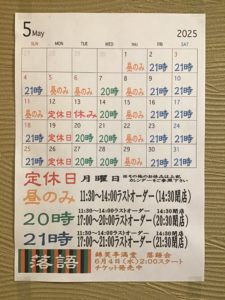 5 May 2025
SUN MON TUE WED THU FRI SAT
1 2 3
昼のみ 21時 21時
4 5 6 7 8 9 10
21時 昼のみ 21時 21時
11 12 13 14 15 16 17
21時 定休日 休み 20時 20時 21時 21時
18 19 20 21 22 23 24
昼のみ 定休日 20時 21時
25 26 27 28 29 30 31
21時 定休日 20時 20時 21時 21時
定休日 月曜日
昼のみ 11:30〜14:00ラストオーダー(14:30閉店)
20時 11:30〜14:00ラストオーダー 14:30閉店
17:00〜20:00ラストオーダー(20:30閉店)
21時 11:30〜14:00ラストオーダー 14:30閉店
17:00〜21:00ラストオーダー(21:30閉店)
落語 錦笑亭満堂 落語会
6月4日(水)2:00スタート
チケット発売中